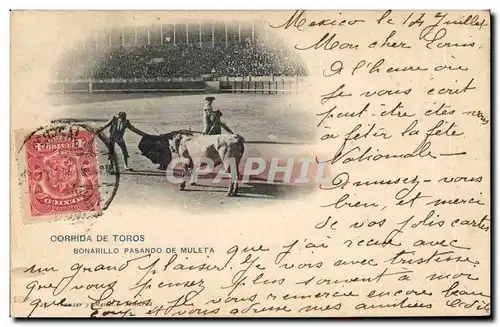 Mexico le 14 Juillet
Mon cher Louis
À l'heure où
je vous écrit
peut-être êtes-vous
à fêtir la fête
Nationale
Amusez-vous
bien, et merci
de vos jolis cartes
CORRIDA DE TOROS
BONARILLO PASANDO DE MULETA
que j'ai reçu avec
un grand plaisir. Je vois avec tristesse
que vous pensez plus souvent a moi
que Je vous remercie encore beau
coup et vous adresse mes amitiées
CPHIL
MEXICO